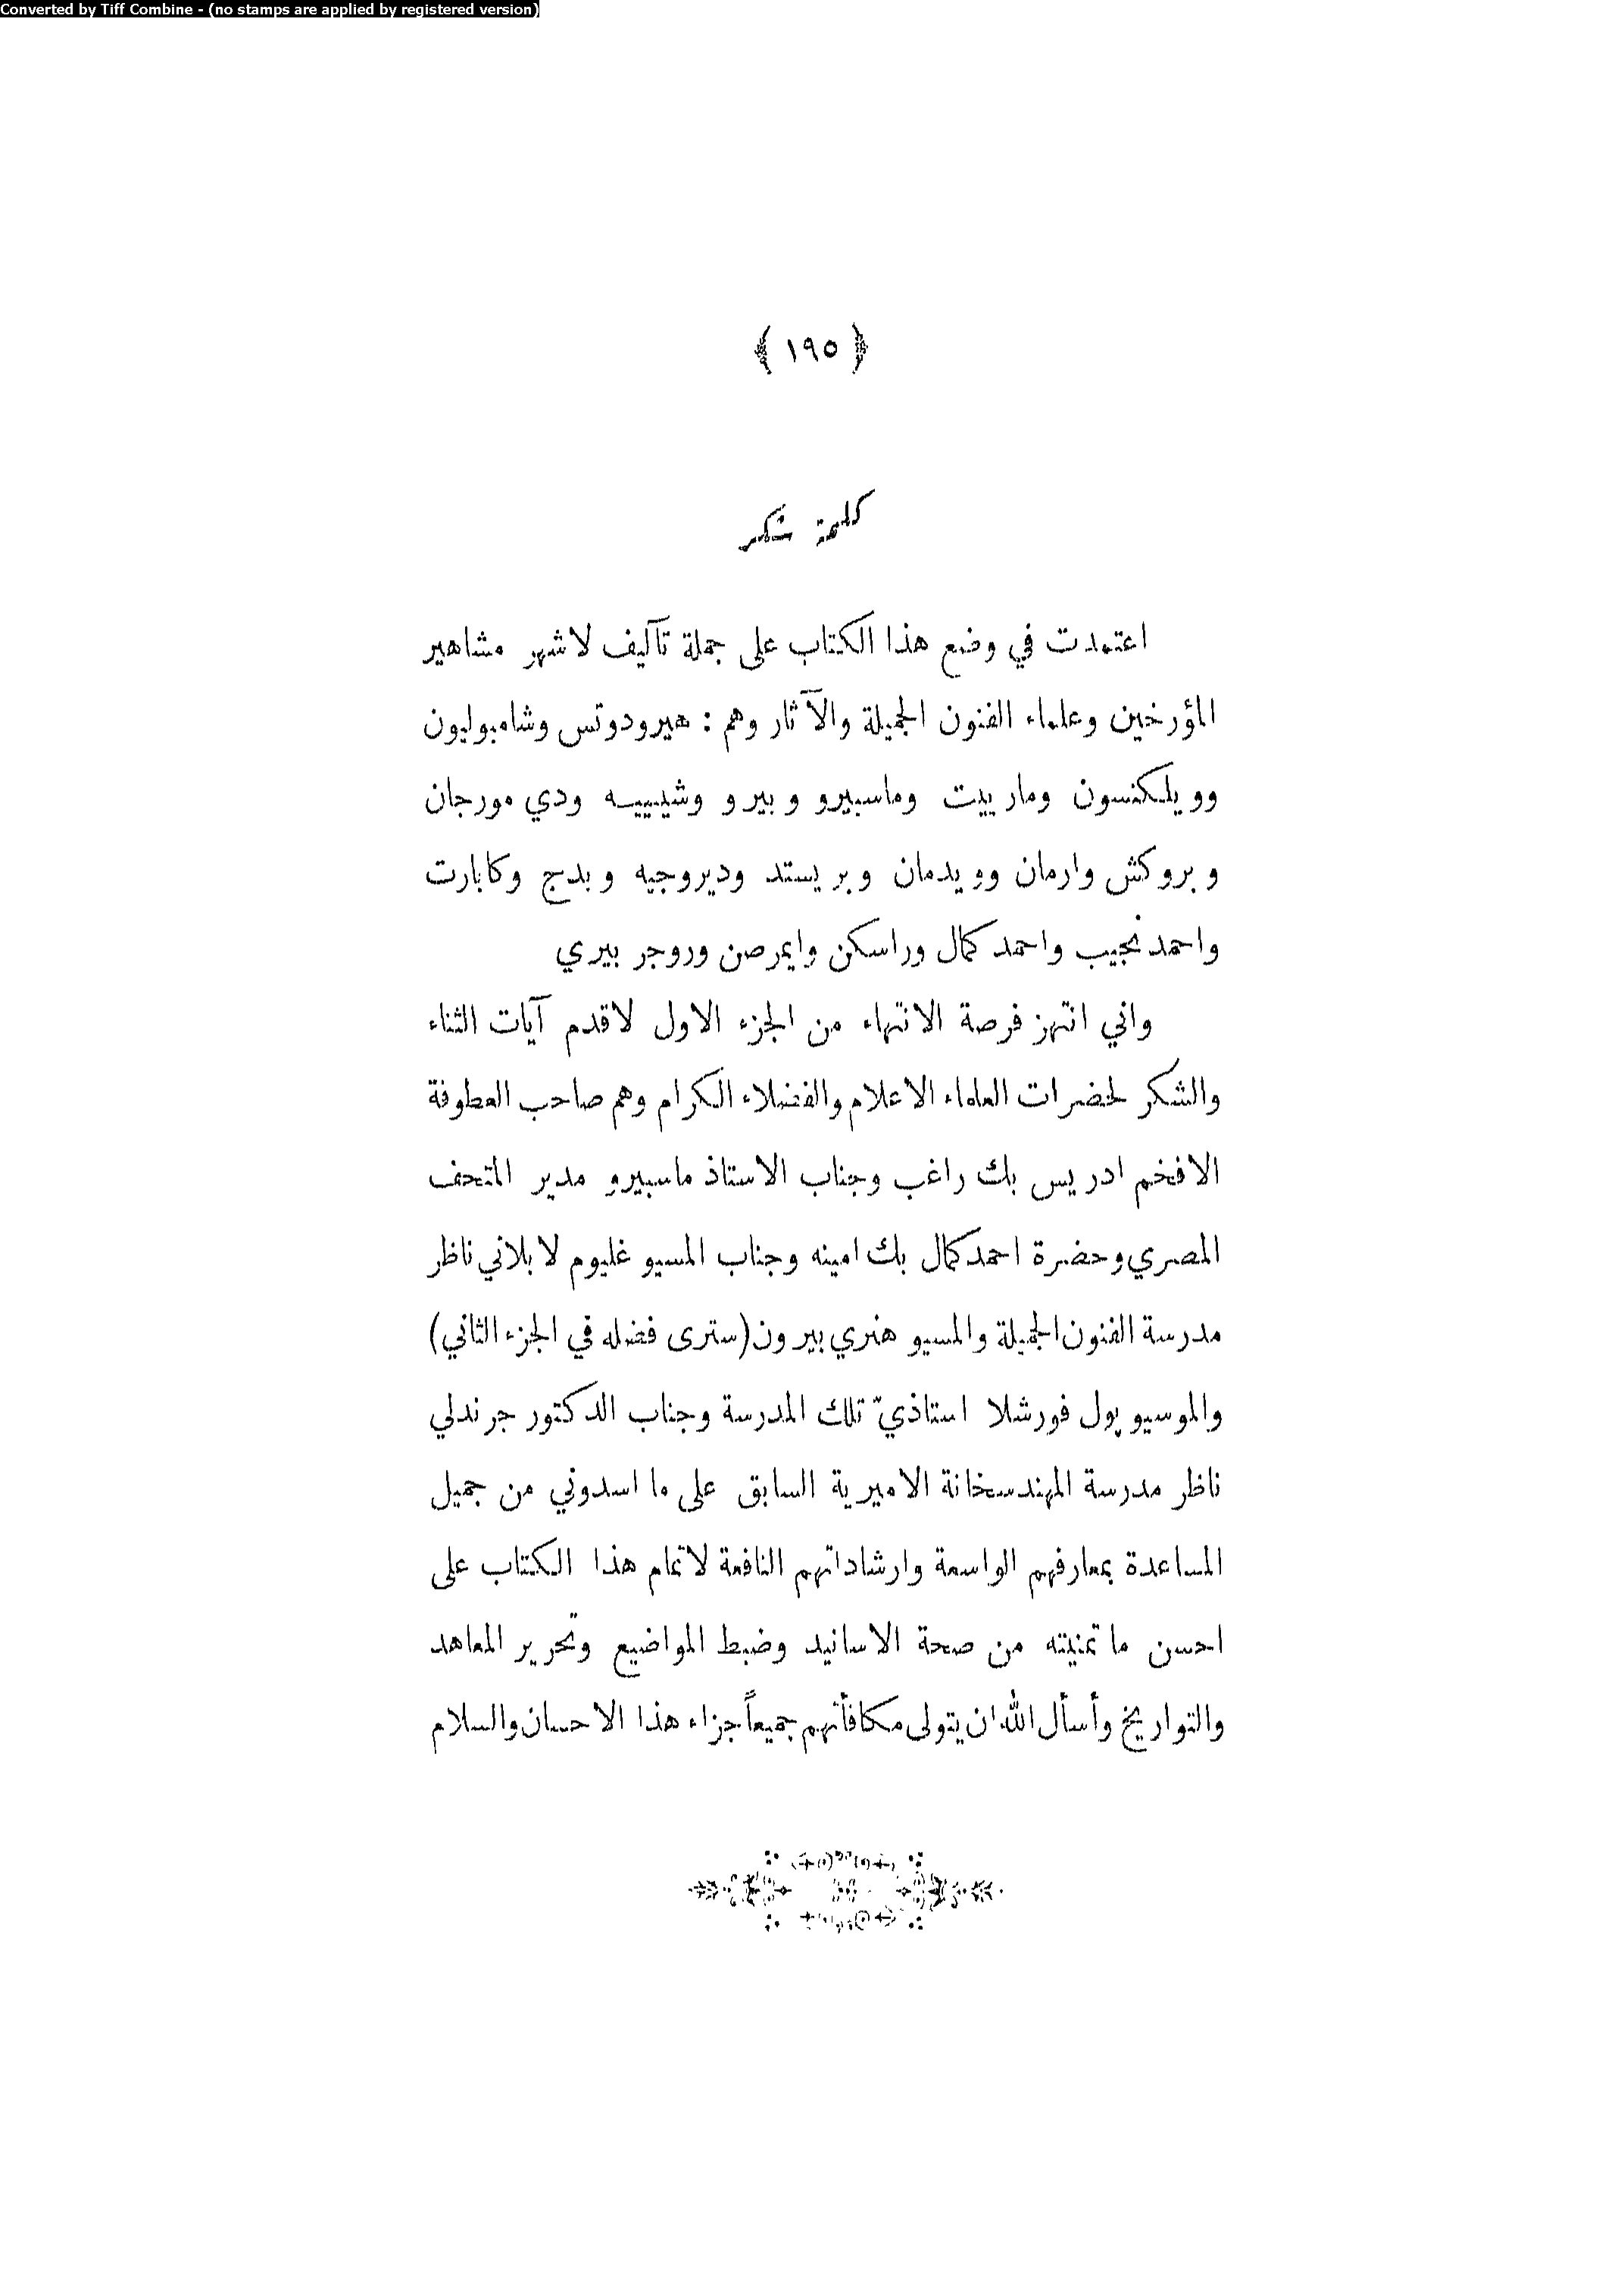 Converted by Tiff Combine - (no stamps are applied by registered version)
﴿ ١٩٥ ﴾
كلمة شكر
اعتمدت في وضع هذا الكتاب على جملة تآليف لاشهر مشاهير
المؤرخين وعلماء الفنون الجميلة والآثار وهم : هيرودوتس وشامبوليون
وويلكنسون ومارييت وماسبيرو وبيرو وشيبييه ودي مورجان
وبروكش وارمان وويدمان وبريستد وديروجيه وبدج وكابارت
واحمد نجيب واحمد كمال وراسكن وايمرصن وروجر بيري
واني انتهز فرصة الانتهاء من الجزء الاول لاقدم آيات الثناء
والشكر لحضرات العلماء الاعلام والفضلاء الكرام وهم صاحب العطوفة
الافخم ادريس بك راغب وجناب الاستاذ ماسبيرو مدير المتحف
المصري وحضرة احمد كمال بك امينه وجناب المسيو غليوم لابلاني ناظر
مدرسة الفنون الجميلة والمسيو هنري بيرون (سترى فضله في الجزء الثاني)
والموسيو پول فورشلا استاذيّ تلك المدرسة وجناب الدكتور جرندلي
ناظر مدرسة المهندسخانة الاميرية السابق على ما اسدوني من جميل
المساعدة بمعارفهم الواسعة وارشاداتهم النافعة لاتمام هذا الكتاب على
احسن ما تمنيته من صحة الاسانيد وضبط المواضيع وتحرير المعاهد
والتواريخ وأسأل الله ان يتولى مكافأتهم جميعاً جزاء هذا الاحسان والسلام